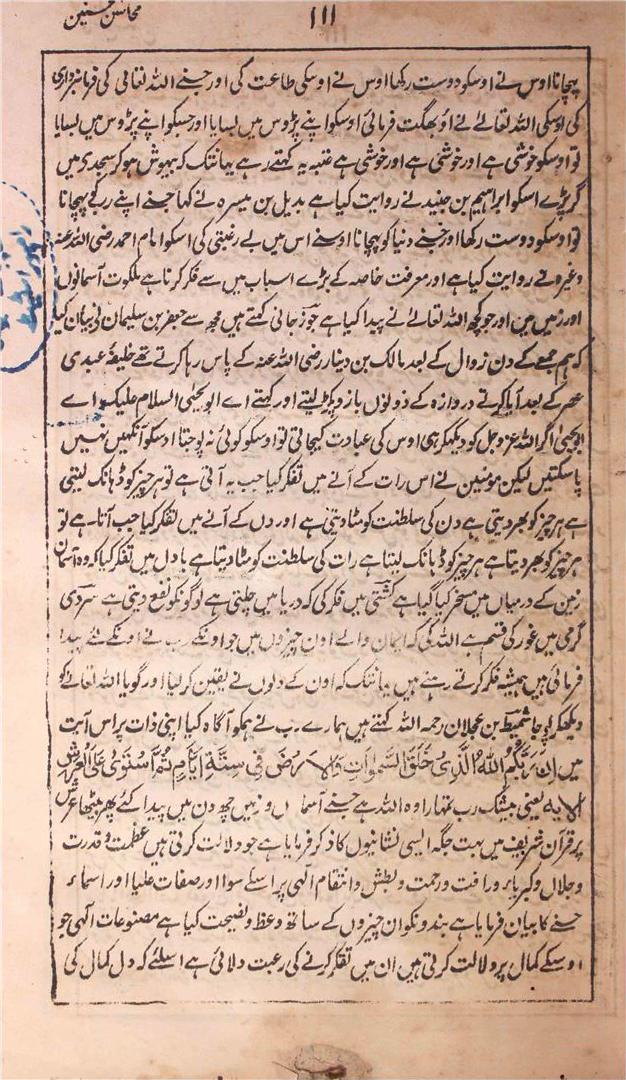 محاسن حسنین
۱۱۱
پہچانا اوس نے اوسکو دوست رکھا اوس نے اوسکی طاعت کی اور جسنے اللہ تعالی کی فرمانبرداری
کی اوسکی اللہ تعالے نے آؤبھگت فرمائی اوسکو اپنے پڑوس میں بسایا اور جسکو اپنے پڑوس میں بسایا
تو اوسکو خوشی ہے اور خوشی ہے اور خوشی ہے عتبہ یہ کہتے رہے یہانتک کہ بیہوش ہو کر سجدی میں
گر پڑے اسکو ابراہیم بن جنید نے روایت کیا ہے بدیل بن میسرہ نے کہا جسنے اپنے رب کو پہچانا
تو اوسکو دوست رکھا اور جسنے دنیا کو پہچانا اوسنے اس میں بے رغبتی کی اسکو امام احمد رضی اللہ عنہ
وغیرہ نے روایت کیا ہے اور معرفت خاصہ کے بڑے اسباب میں سے فکر کرنا ہے ملکوت آسمانوں
اور زمیں میں اور جو کچھ اللہ تعالے نے پیدا کیا ہے جوزجانی کہتے ہیں مجھ سے جعفر بن سلیمان نے بیان کیا
کہ ہم جمعے کے دن زوال کے بعد مالک بن دینار رضی اللہ عنہ کے پاس رہا کرتے تھے خلیفۂ عبدی
عصر کے بعد آیا کرتے دروازہ کے دونوں بازو پکڑ لیتے اور کہتے اے ابو یحیی السلام علیک اے
ابو یحیی اگر اللہ عز وجل کو دیکھکر ہی اوس کی عبادت کیجاتی تو اوسکو کوئی نہ پوجتا اوسکو آنکھیں نہیں
پا سکتیں لیکن مومنین نے اس رات کے آنے میں تفکر کیا جب یہ آتی ہے تو ہر چیز کو ڈہانک لیتی
ہے ہر چیز کو بھر دیتی ہے دن کی سلطنت کو مٹا دیتی ہے اور دن کے آنے میں تفکر کیا جب آتا ہے تو
ہر چیز کو بھر دیتا ہے ہر چیز کو ڈہانک لیتا ہے رات کی سلطنت کو مٹا دیتا ہے بادل میں تفکر کیا کہ وہ آسمان
زمین کے درمیاں میں مسخر کیا گیا ہے کشتی میں فکر کی کہ دریا میں چلتی ہے لوگونکو نفع دیتی ہے سردی
گرمی میں غور کی قسم ہے اللہ کی کہ ایمان والے اون چیزوں میں جو اونکے رب نے اونکے لئے پیدا
فرمائی ہیں ہمیشہ فکر کرتے رہتے ہیں یہانتک کہ اون کے دلوں نے یقین کر لیا اور گویا اللہ تعالے کو
دیکھکر پوجا شمیط بن عجلان رحمہ اللہ کہتے ہیں ہمارے رب نے ہمکو آگاہ کیا اپنی ذات پر اس آیت
میں اِنَّ رَبَّكُمُ اللّٰهُ الَّذِیْ خَلَقَ السَّمٰوَاتِ وَالْاَرْضَ فِیْ سِتَّةِ اَیَّامٍ ثُمَّ اسْتَوٰی عَلَی الْعَرْشِ
الایہ یعنی بیشک رب تمہارا وہ اللہ ہے جسنے آسما ں و زمیں چھ دن میں پیدا کئے پھر بیٹھا عرش
پر قرآن شریف میں بہت جگہ ایسی نشانیوں کا ذکر فرمایا ہے جو دلالت کرتی ہیں عظمت و قدرت
و جلال و کبریاء و رافت و رحمت و بطش و انتقام الہی پر اسلئے سوا اور صفات علیا اور اسماء
حسنے کا بیان فرمایا ہے بندونکو ان چیزوں کے ساتھ وعظ و نصیحت کیا ہے مصنوعات الہی جو
اوسکے کمال پر دلالت کرتی ہیں ان میں تفکر کرنے کی رعبت دلائی ہے اسلئے کہ دل کمال کی